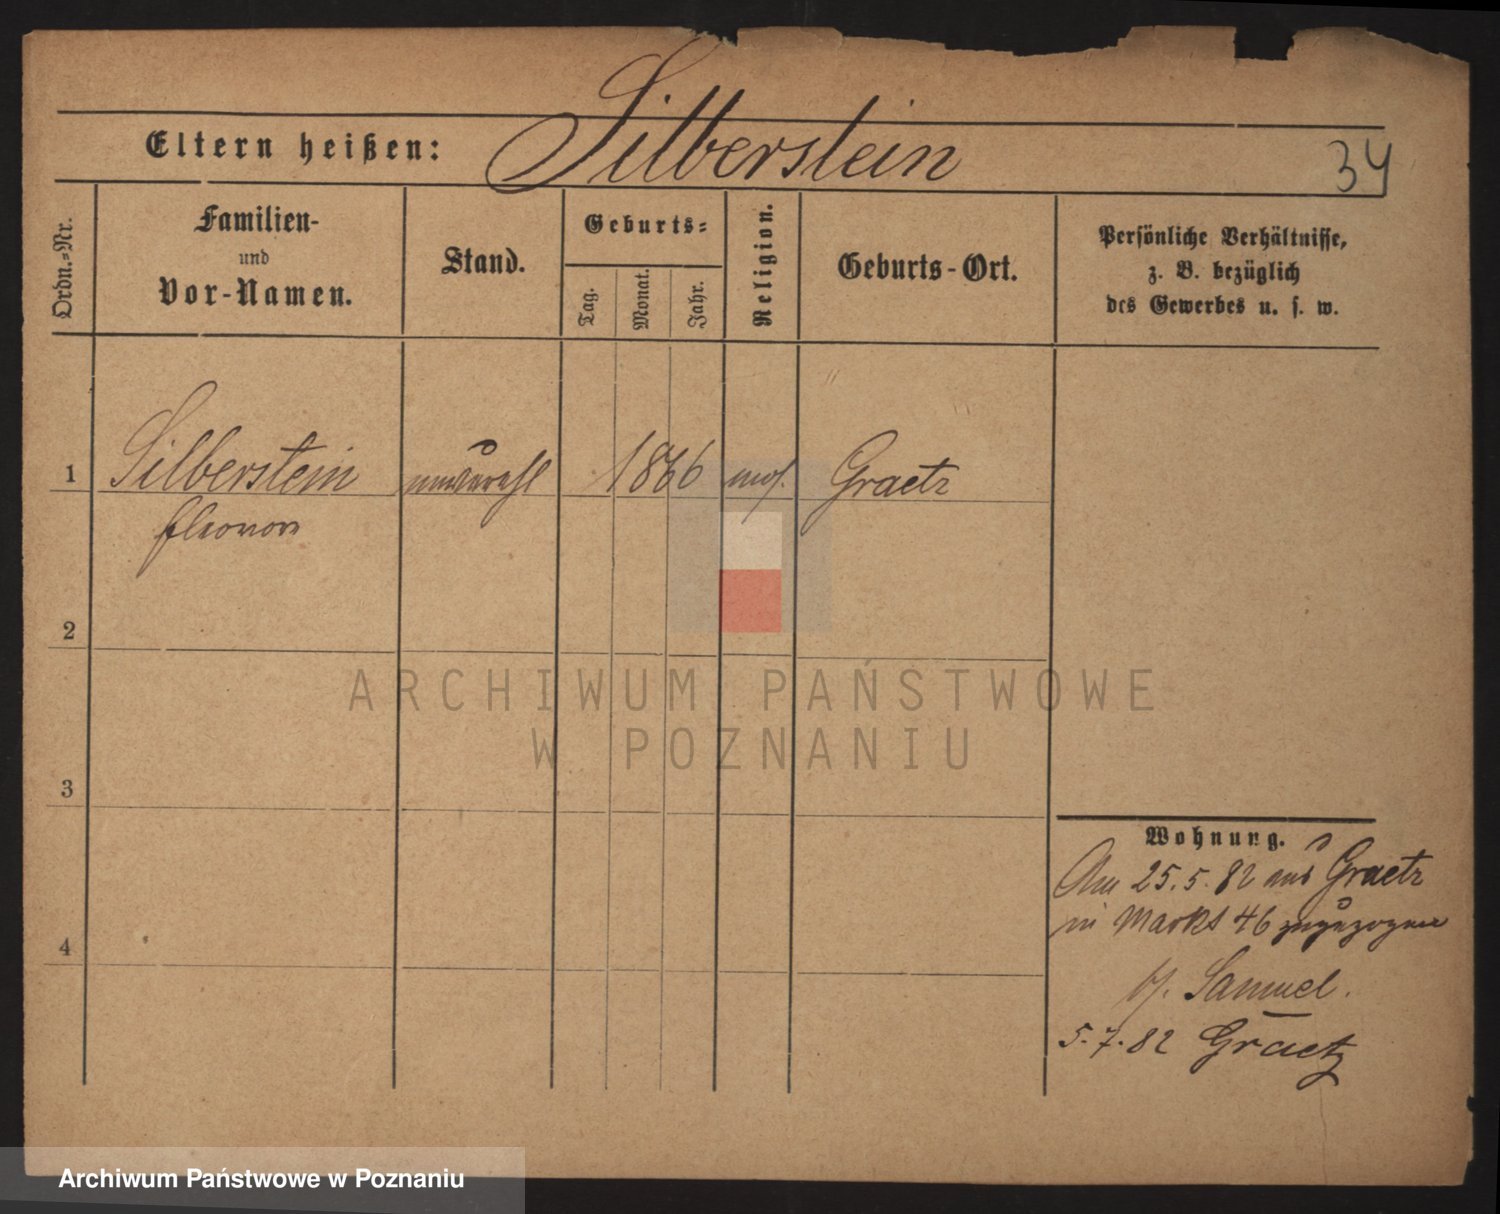 Eltern heißen: Silberstein
34
Ordn.=Nr.
Familien-
und
Vor-Namen.
Stand.
Geburts=
Tag.
Monat.
Jahr.
Religion.
Geburts-Ort.
Persönliche Verhältnisse,
z. B. bezüglich
des Gewerbes u. s. w.
1 Silberstein unverehl 1866 mos. Graetz
Eleonore
2
ARCHIWUM PAŃSTWOWE
W POZNANIU
3
Wohnung.
Am 25.5.82 aus Graetz
in Markt 46 zugezogen
b/. Samuel.
4
5.7.82 Graetz
Archiwum Państwowe w Poznaniu